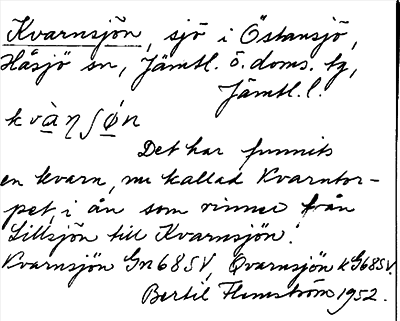 Kvarnsjön, sjö i Östansjö,
Håsjö sn, Jämtl. ö. doms. tg,
Jämtl. l.
kvàηʃǿn
Det har funnits
en kvarn, nu kallad Kvarntor-
pet, i ån som rinner från
Lillsjön till Kvarnsjön.
Kvarnsjön Gn 68SV, Qvarnsjön kG68SV.
Bertil Flemström 1952.